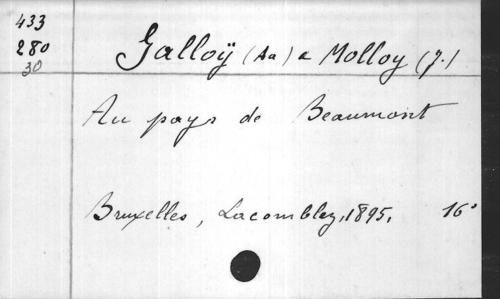 433
280
30
Galloÿ (Aa) & Molloy (J.)
Au pays de Beaumont
Bruxelles, Lacomblez, 1895, 16°